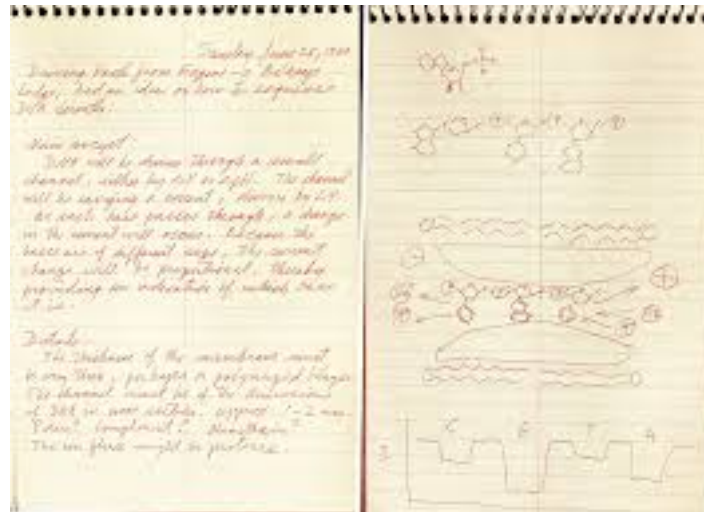 Sunday June 25, 1989
Driving back from Eugene → Belknap
Lodge, had an idea on how to sequence
DNA directly.
Main concept:
DNA will be driven through a small
channel, either by ΔΨ or ΔpH. The channel
will be carrying a current, driven by ΔΨ.
As each base passes through, a change
in the current will occur. Because the
bases are of different sizes, the current
change will be proportional, thereby
providing an indication of which base
it is.
Details
The thickness of the membrane must
be very thin, perhaps a polymerized bilayer
The channel must be of the dimensions
of DNA in cross section, approx 1-2 nm.
Porin? Complement?
The ion flux might be protons.
C G T A
I